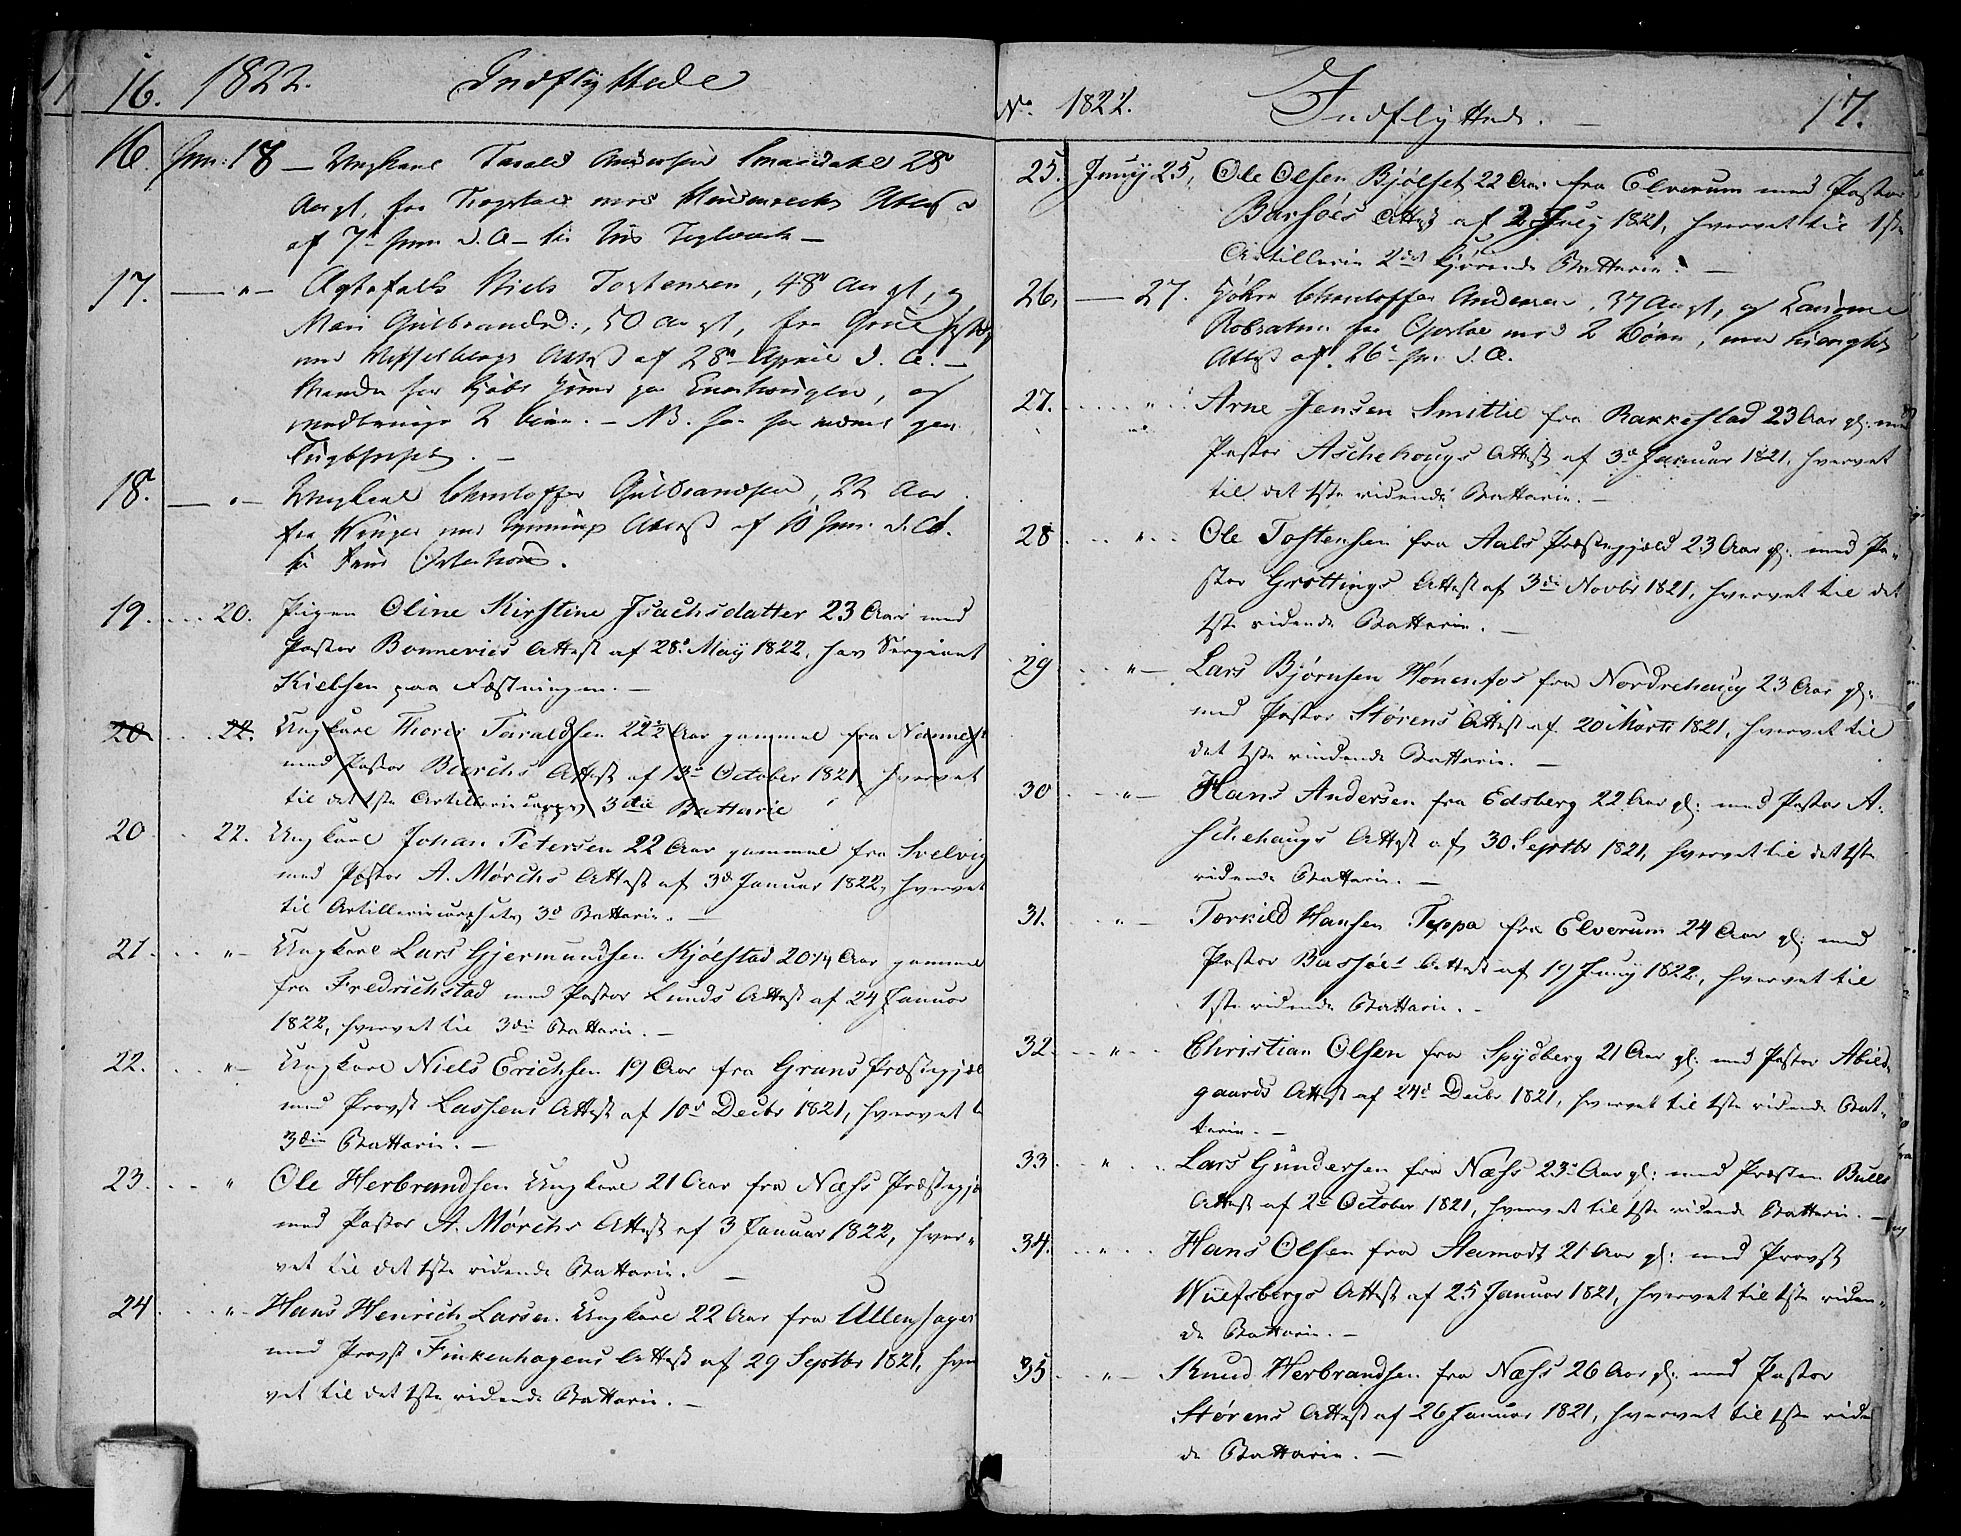 16. 1822. Indflyttede
16. Jun: 18 — Ungkarl Tarald Andersen Smaadahl 28
Aar gl, fra med Attest
af 7de Jun. d. A. — til Teglværk —
17. — " — Ægtefolk Niels Tostensen, 48 Aar gl, og
Mari Gulbrandsd:, 50 Aar gl, fra Grue
med Attest af 28de April d. A. —
Manden har kjøbt paa Enerhougen, og
medbringe 2 Børn. — NB. har
.—
18. — " — Ungkarl Christoffer Gulbrandsen, 22 Aar
fra Winger med Attest af 10 Jun. d. A.
til
19. ... 20. Pigen Oline Kirstine Isachsdatter 23 Aar med
Pastor Bonnevies Attest af 28de May 1822, hos Sergiant
Kielsen paa Fæstningen. —
20 .. 22. Ungkarl Thorer Taraldsen 22½ Aar gammel fra
med Pastor Attest af 13de October 1821, hvervet
til det 1ste Artilleriecorps 3die Batterie
20 .. 22. Ungkarl Johan Petersen 22 Aar gammel fra Svelvig
med Pastor A. Mørchs Attest af 3de Januar 1822, hvervet
til Artilleriecorpsets 3die Batterie. —
21. .. " — Ungkarl Lars Gjermundsen Kjølstad 20 1/4 Aar gammel
fra Fredrichstad med Pastor Lunds Attest af 24 Januar
1822, hvervet til 3die Batterie. —
22. .. " — Ungkarl Niels Erichsen 19 Aar fra Grans Præstegjæl
med Provst Lassens Attest af 10de Decbr 1821, hvervet t
3die Batterie. —
23. .. " Ole Herbrandsen Ungkarl 21 Aar fra Næss Præstegj
med Pastor A. Mørchs Attest af 3 Januar 1822, hver-
vet til det 1ste ridende Batterie. —
24 ... " — Hans Henrich Larsen Ungkarl 22 Aar fra Ullensager
med Provst Finkenhagens Attest af 29 Septbr 1821, hver
vet til det 1ste ridende Batterie. —
No. 1822. Indflyttede. — 17.
25. Juny 25, Ole Olsen Bjølset, 22 Aar fra Elverum med Pastor
Barhoes Attest af 2 July 1821, hvervet til 1ste
Artillerie 2det kjørende Batterie. —
26. — 27. Christoffer Andersen, 37 Aar gl, og
fra med 2 Børn, med
Attest af 26de Jun. d. A.
27. ..... " . Arne Jensen Smittil fra Rakkestad 23 Aar gl: med
Pastor Aschehougs Attest af 3de Januar 1821, hvervet
til det 1ste ridende Batterie. —
28 .. " .. Ole Tostensen fra Aals Præstegjæld 23 Aar gl: med Pa-
stor Grøttings Attest af 3die Novbr 1821, hvervet til det
1ste ridende Batterie. —
29 .. " — Lars Bjørnsen Hønenfos fra Nordrehaug 23 Aar gl:
med Pastor Størens Attest af 20 Marts 1821, hvervet til
det 1ste rindende Batterie. —
30 ... " — Hans Andersen fra Edsberg 22 Aar gl: med Pastor A-
schehougs Attest af 30 Septbr 1821, hvervet til det 1ste
ridende Batterie. —
31. .. " — Torkild Hansen Teppa fra Elverum 24 Aar gl: med
Pastor Attest af 19 Juny 1822, hvervet til
1ste ridende Batterie. —
32. .. " .. Christian Olsen fra Spydberg 21 Aar gl: med Pastor Abild-
gaards Attest af 24de Decbr 1821, hvervet til 1ste ridende Bat-
terie. —
33 .. " .. Lars Gundersen fra Næss 23 Aar gl: med Præsten Bulls
Attest af 2de October 1821, hvervet til 1ste ridende Batterie. —
34. .. " .. Hans Olsen fra Aamodt 21 Aar gl: med Provst
Wulfsbergs Attest af 25 Januar 1821, hvervet til 1ste riden-
de Batterie. —
35 .. " — Knud Herbrandsen fra Næss 26 Aar gl: med Pastor
Størens Attest af 26 Januar 1821, hvervet til 1ste riden
de Batterie. —